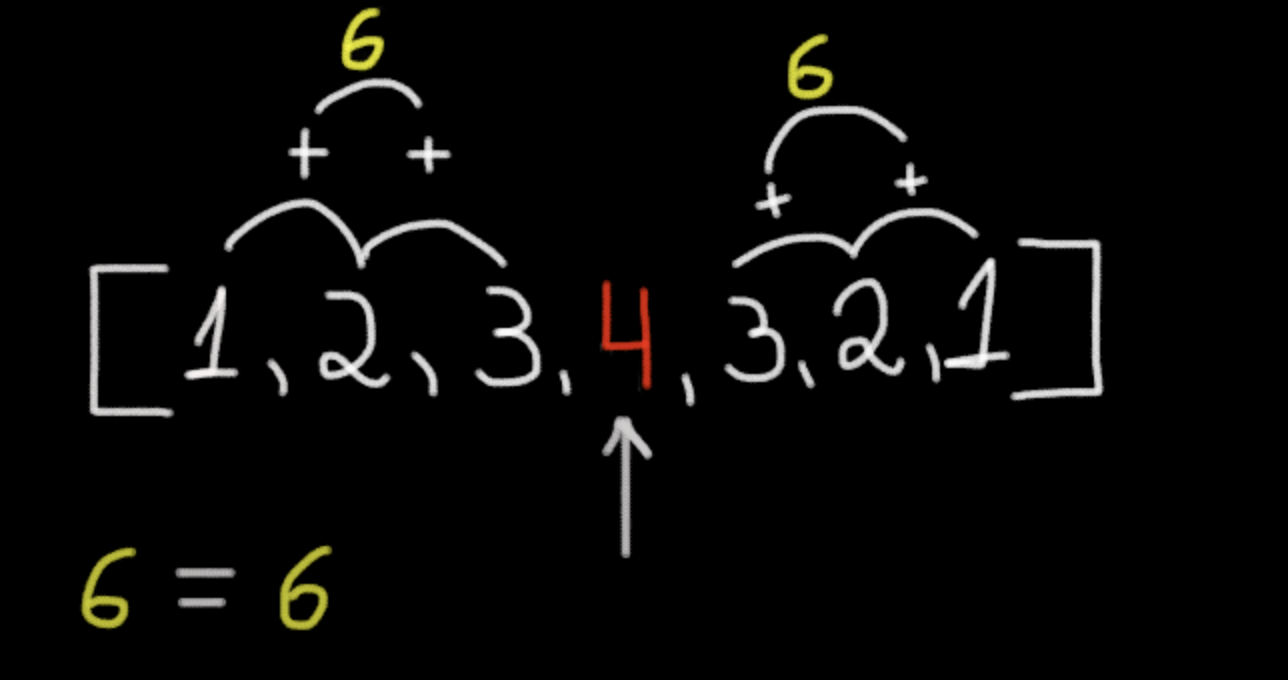 6 6
+ + + +
[1, 2, 3, 4, 3, 2, 1]
6 = 6